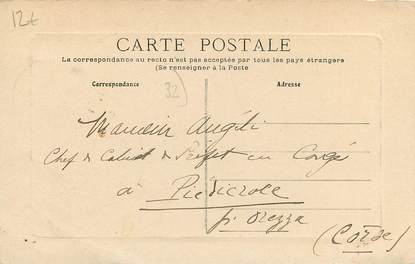 12€
CARTE POSTALE
La correspondance au recto n'est pas acceptée par tous les pays étrangers
(Se renseigner à la Poste
Correspondance
Adresse
32
Monsieur Angéli
Chef de Cabinet de Préfet en Congé
à Piedicroce
pr Orezza
(Corse)